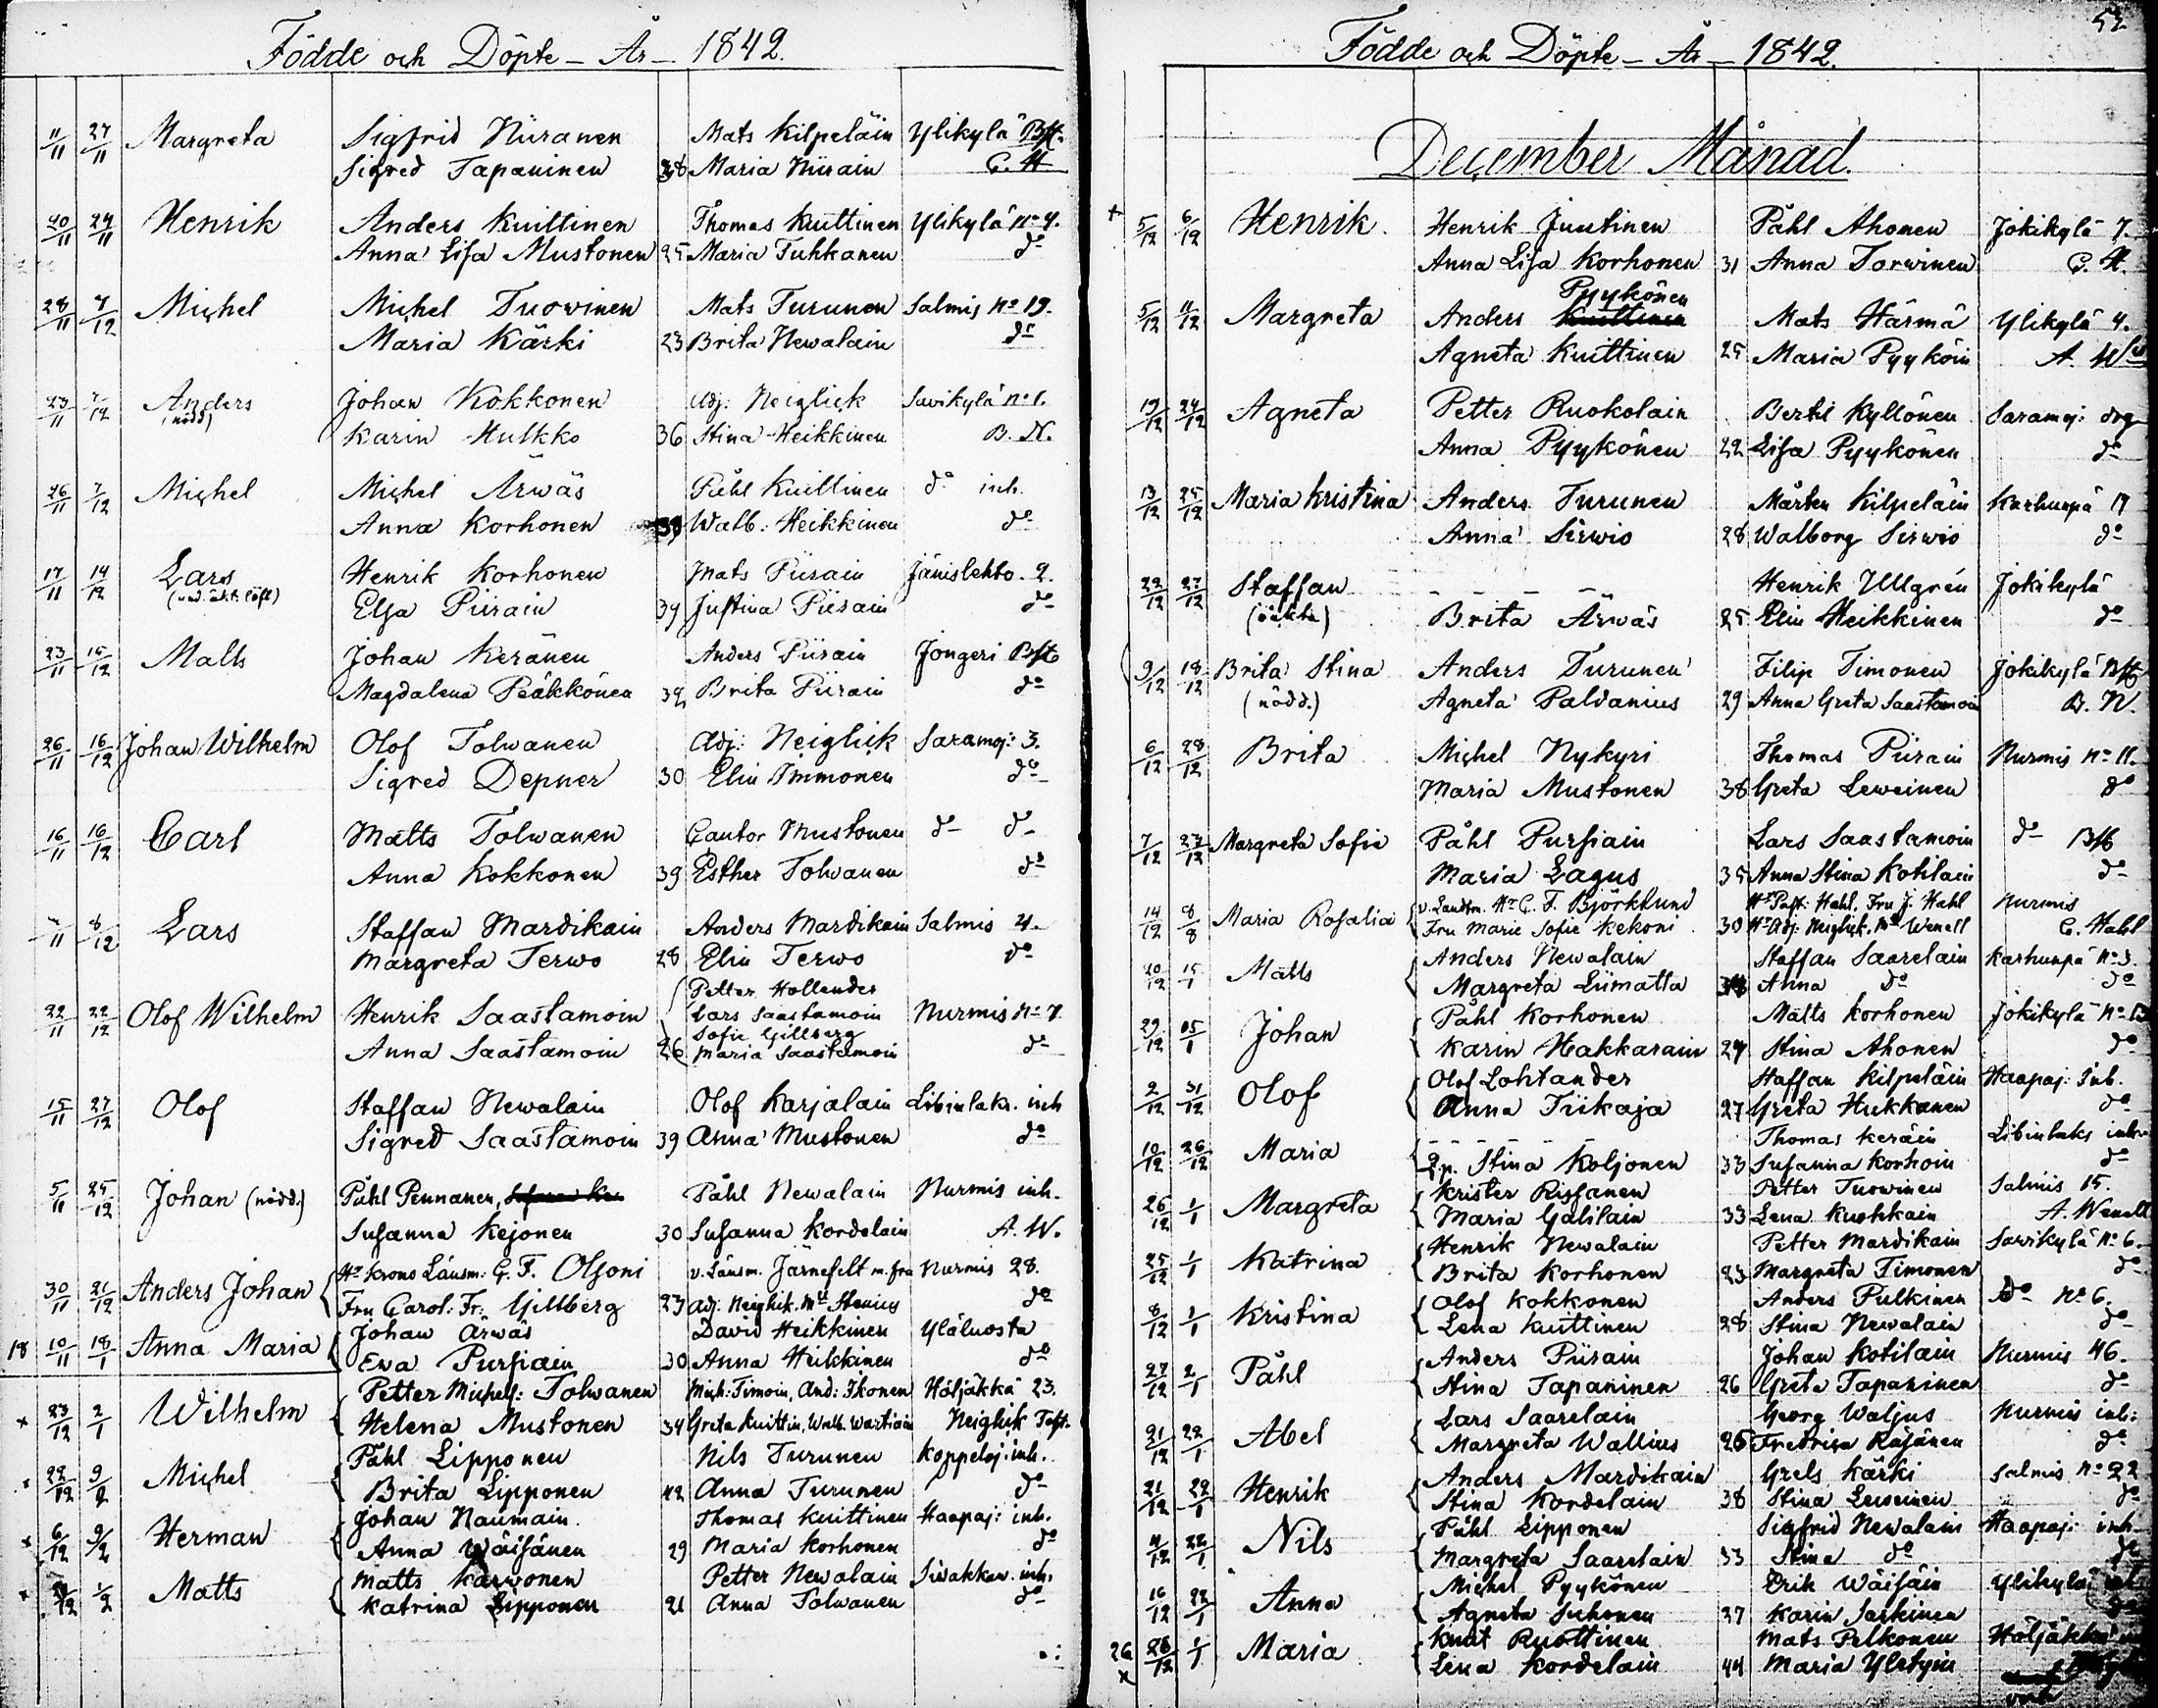 Födde och Döpte - År - 1842.
11/11 27/11 Margreta Sigfrid Niiranen Mats Kilpeläin Ylikylä Bst.
Sigred Tapaninen 38 Maria Niirain C. H
20/11 24/11 Henrik Anders Kuittinen Thomas Kuittinen Ylikylä No 4.
Anna Lisa Mustonen 25 Maria Tuhkanen do
28/11 7/12 Michel Michel Tuovinen Mats Turunen Salmis No 19.
Maria Kärki 23 Brita Newalain do
23/11 7/12 Anders Johan Kokkonen Adj: Neiglick Savikylä No 1.
(nödd) Karin Hulkko 36 Stina Heikkinen B. N.
26/11 7/12 Michel Michel Ärwäs Påhl Kuittinen do inh.
Anna Korhonen 39 Walb: Heikkinen do
17/11 14/12 Lars Henrik Korhonen Mats Piirain Jänislehto. 2.
Elsa Piirain 39 Justina Piirain do
23/11 15/12 Matts Johan Keränen Anders Piirain Jongeri Bst
Magdalena Pääkkönen 32 Brita Piirain do
26/11 16/12 Johan Wilhelm Olof Tolwanen Adj: Neiglick Saramoj: 3.
Sigred Depner 30 Elin Immonen do
16/11 16/12 Carl Matts Tolwanen Cantor Mustonen do do
Anna Kokkonen 39 Esther Tolwanen do
/11 8/12 Lars Staffan Mardikain Anders Mardikain Salmis 4.
Margreta Terwo 28 Elin Terwo do
Petter Hollander
22/11 22/12 Olof Wilhelm Henrik Saastamoin Lars Saastamoin Nurmis No 7.
Sofie Gillberg
Anna Saastamoin 26 Maria Saastamoin do
15/11 27/12 Olof Staffan Newalain Olof Karjalain Libinlaks. inh
Sigred Saastamoin 39 Anna Mustonen do
5/11 25/12 Johan (nödd.) Påhl Pennanen, Påhl Newalain Nurmis inh.
Susanna Kejonen 30 Susanna Kordelain A. W.
30/11 21/12 Anders Johan Hr Krono Länsm: G. F. Olsoni v. Länsm. Järnefelt m. fra Nurmis 28.
Fru Carol: Fr: Gillberg 23 Adj. Neiglik. Mll Stenius do
18 10/11 18/1 Anna Maria Johan Ärwäs David Heikkinen Yläluosta
Ewa Pursiain 30 Anna Heikkinen do
x 23/12 2/1 Wilhelm Petter Michels: Tolwanen Mich: Timoin, And: Ikonen Höljäkkä 23.
Helena Mustonen 34 Greta Kuittin, Walb. Wartiain Neiglik Tst.
22/12 9/2 Michel Påhl Lipponen Nils Turunen Koppeloj: inh.
Brita Lipponen 42 Anna Turunen do
x 6/12 9/2 Herman Johan Naumain. Thomas Kuittinen Haapaj: inh.
Anna Wäisänen 29 Maria Korhonen do
x /12 1/2 Matts Matts Karwonen Petter Newalain Siwakkaw. inh.
Katrina Lipponen 21 Anna Tolwanen do
53.
Födde och Döpte - År - 1842.
December Månad.
x 5/12 6/12 Henrik. Henrik Juutinen Påhl Ahonen Jokikylä 7.
Anna Lisa Korhonen 31 Anna Torwinen C. H.
Pyykönen
5/12 11/12 Margreta Anders Kuittinen Mats Härmä Ylikylä 4.
Agneta Kuittinen 25 Maria Pyyköin A. W
19/12 24/12 Agneta Petter Ruokolain Bertil Kyllönen Saramoj: drg
Anna Pyykönen 22 Lisa Pyykönen do
13/12 25/12 Maria Kristina Anders Turunen Mårten Kilpeläin Karhunpä 17
Anna Sirwio 28 Walborg Sirwio do
22/12 27/12 Staffan - - - - Henrik Ullgrén Jokikylä
(oäkta) Brita Ärwäs 25 Elin Heikkinen do
9/12 18/12 Brita Stina Anders Turunen Filip Timonen Jokikylä Bst
(nödd.) Agneta Paldanius 29 Anna Greta Saastamoin B. N.
6/12 28/12 Brita Michel Nykyri Thomas Piirain Nurmis No 11.
Maria Mustonen 38 Greta Leweinen do
7/12 27/12 Margreta Sofie Påhl Pursiain Lars Saastamoin do Bst
Maria Lagus 35 Anna Stina Kotilain do
14/12 8/8 Maria Rosalia v. Landtm. Hr C. F. Björklund Hr Past: Hahl, Fru J. Hahl Nurmis
Fru Marie Sofie Kekoni 30 Hr Adj: Neiglick, Wenell C. Hahl
20/12 15/1 Matts Anders Newalain Staffan Saarelain Karhunpä No 3.
Margreta Liimatta Anna do do
29/12 15/1 Johan Påhl Korhonen Matts Korhonen Jokikylä No 13
Karin Hakkarain 27 Stina Ahonen do
2/12 31/12 Olof Olof Lohtander Staffan Kilpeläin Haapaj: inh.
Anna Tiikaja 27 Greta Hukkanen do
10/12 26/12 Maria - - - - - - Thomas Keräin Libinlaks inh.
Qp. Stina Koljonen 33 Susanna Korhoin do
26/12 1/1 Margreta Krister Rissanen Petter Tuowinen Salmis 15.
Maria Galilain 33 Lena Kuohkain A. Wenell
25/12 1/1 Katrina Henrik Newalain Petter Mardikain Savikylä No 6.
Brita Korhonen 23 Margreta Timonen do
8/12 1/1 Kristina Olof Kokkonen Anders Pulkinen do No 6.
Lena Kuittinen 28 Stina Newalain do
27/12 2/1 Påhl Anders Piirain Johan Kotilain Nurmis 46.
Stina Tapaninen 26 Greta Tapaninen do
21/12 22/1 Abel Lars Saarelain Georg Waljus Nurmis inh:
Margreta Wallius 26 Fredrica Räsänen do
21/12 22/1 Henrik Anders Mardikain Grels Kärki Salmis No 22
Stina Kordelain 38 Stina Leweinen do
4/12 22/1 Nils Påhl Lipponen Sigfrid Newalain Haapaj: inh.
Margreta Saarelain 33 Stina do do
16/12 22/1 Anna Michel Pyykönen Erik Wäisäin Ylikylä
Agneta Suhonen 37 Karin Sarkinen
26 28/12 1/1 Maria Knut Ruottinen Mats Pelkonen Höljäkkä
x Lena Kordelain 44 Maria Yletyin